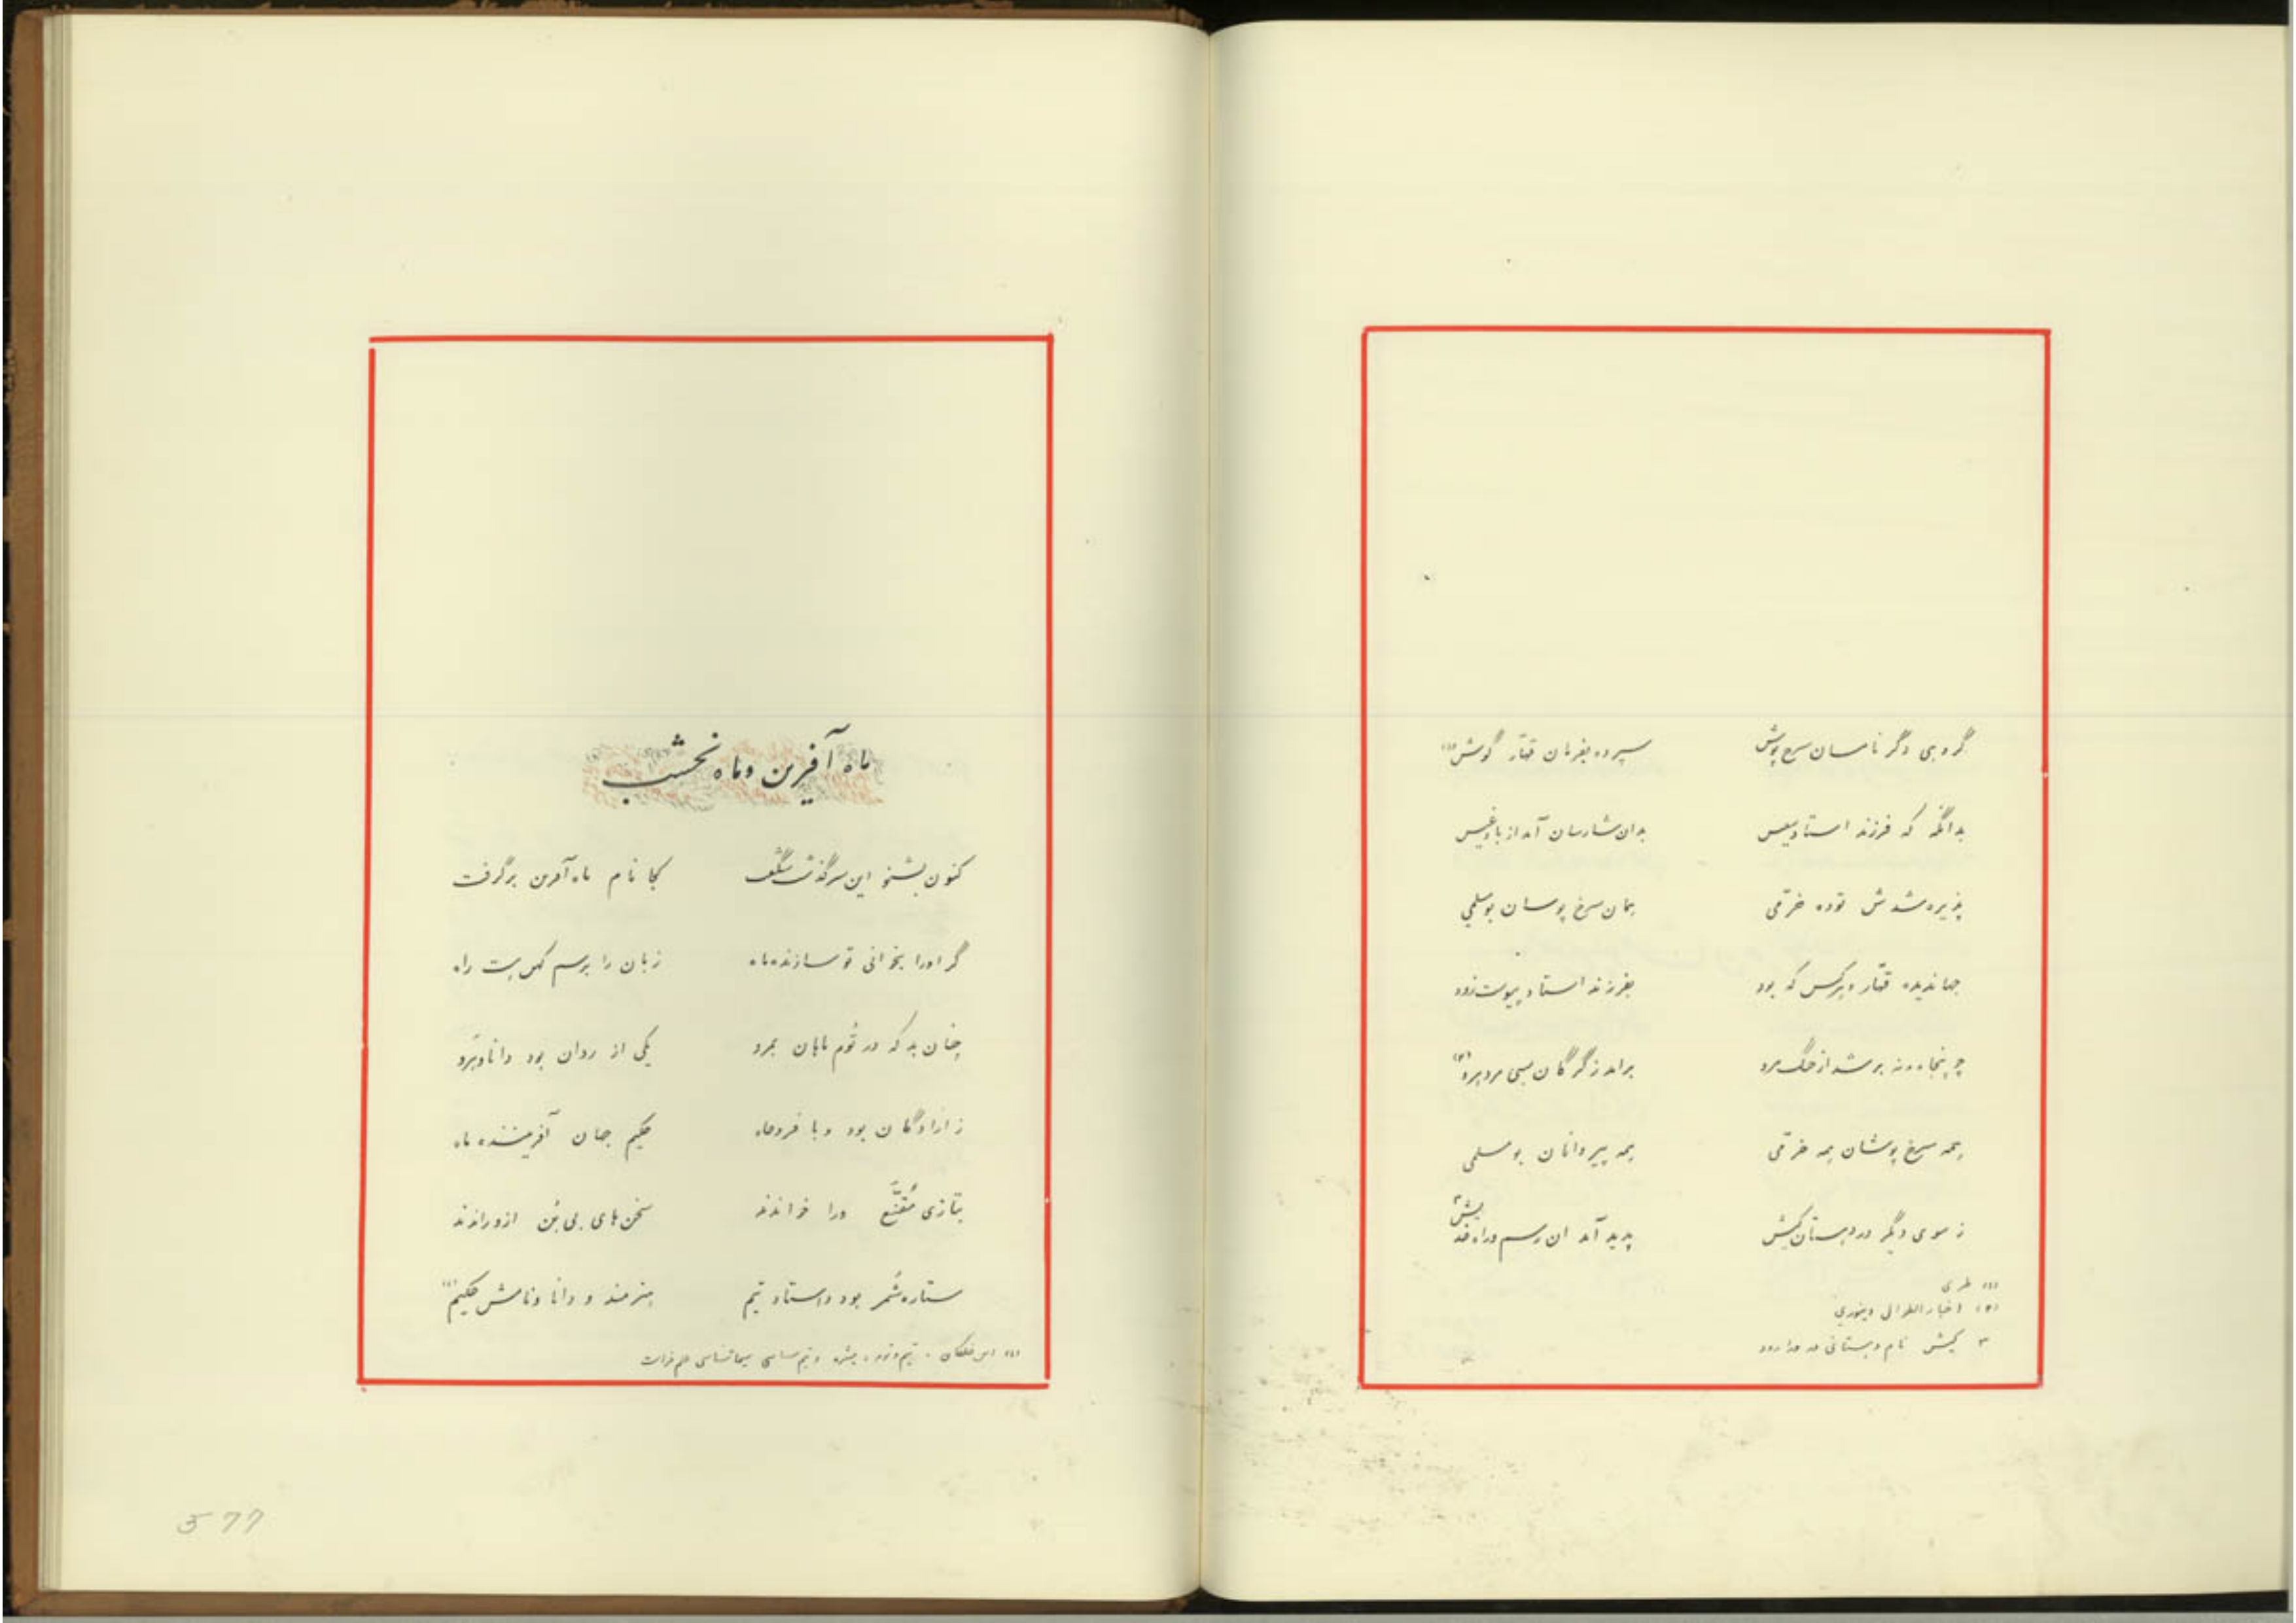 گروهی دگر نامسان سرخ پوش    سپرده بفرمان قهّار گوش (۱)
بدانگه که فرزند استادسیس    بدان شارسان آمد از بادغیس
پذیره شدش توده خرّمی    همان سرخ پوسان بومسلمی
جهاندیده قهّار و هرکس که بود    بفرزند استاد پیوست زود
چو پنجاه و نه بر شد از    برآمد ز گرگان بسی مرد
همه سرخ پوشان همه خرّمی    همه پیروانان بومسلمی
ز سوی دیگر در دبستان کیش    پدید آمد ان رسم و راه
(۱) طبری
(۲) اخبار الطوال دینوری
۳ کیش نام دبستانی در
ماه آفرین و ماه نخشب
کنون بشنو این سرگذشت شگفت    کجا نام ماه آفرین برگرفت
گر اورا بخوانی تو سازنده ماه    زبان را برسم کهن بست راه
چنان بد که در بوم ماهان بمرو    یکی از ردان بود دانا و
ز آزادگان بود و با فر و جاه    حکیم جهان آفریننده ماه
بتازی مُقَنَّع ورا خواندند    سخن های بی بُن ازو راندند
ستاره شُمر بود و استاد تیم    هنرمند و دانا و نامش حکیم (۱)
(۱) ابن خلکان
577